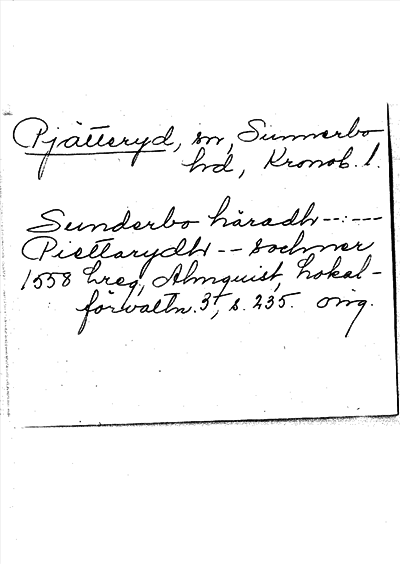 Pjätteryd, sn, Sunnerbo
hd, Kronob. l.
Sunderbo häradh --:---
Piettarydh -- sochner
1558 Lreg, Almquist, Lokal-
förvaltn. 3, s. 235. orig.